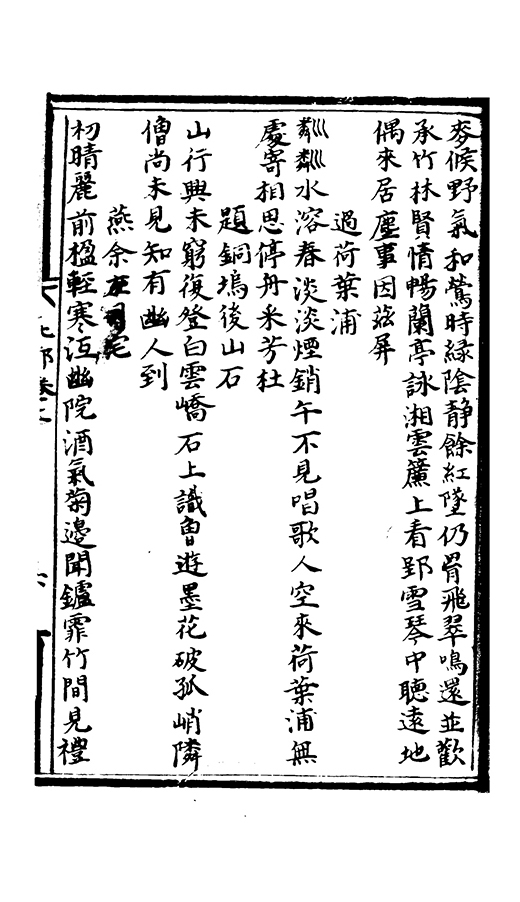 麥候野氣和鶯時緑陰静餘紅墜仍罥飛翠鳴還並歡
承竹林賢情暢蘭亭詠湘雲簾上看郢雪琴中聽遠地
偶來居塵事因兹屏
過荷葉浦
粼粼水溶春淡淡煙銷午不見唱歌人空來荷葉浦無
處寄相思停舟采芳杜
題銅塢後山石
山行興未窮復登白雲嶠石上識曾遊墨花破孤峭隣
僧尚未見知有幽人到
燕余左司宅
初晴麗前楹輕寒沍幽院酒氣菊邊聞鑪霏竹間見禮